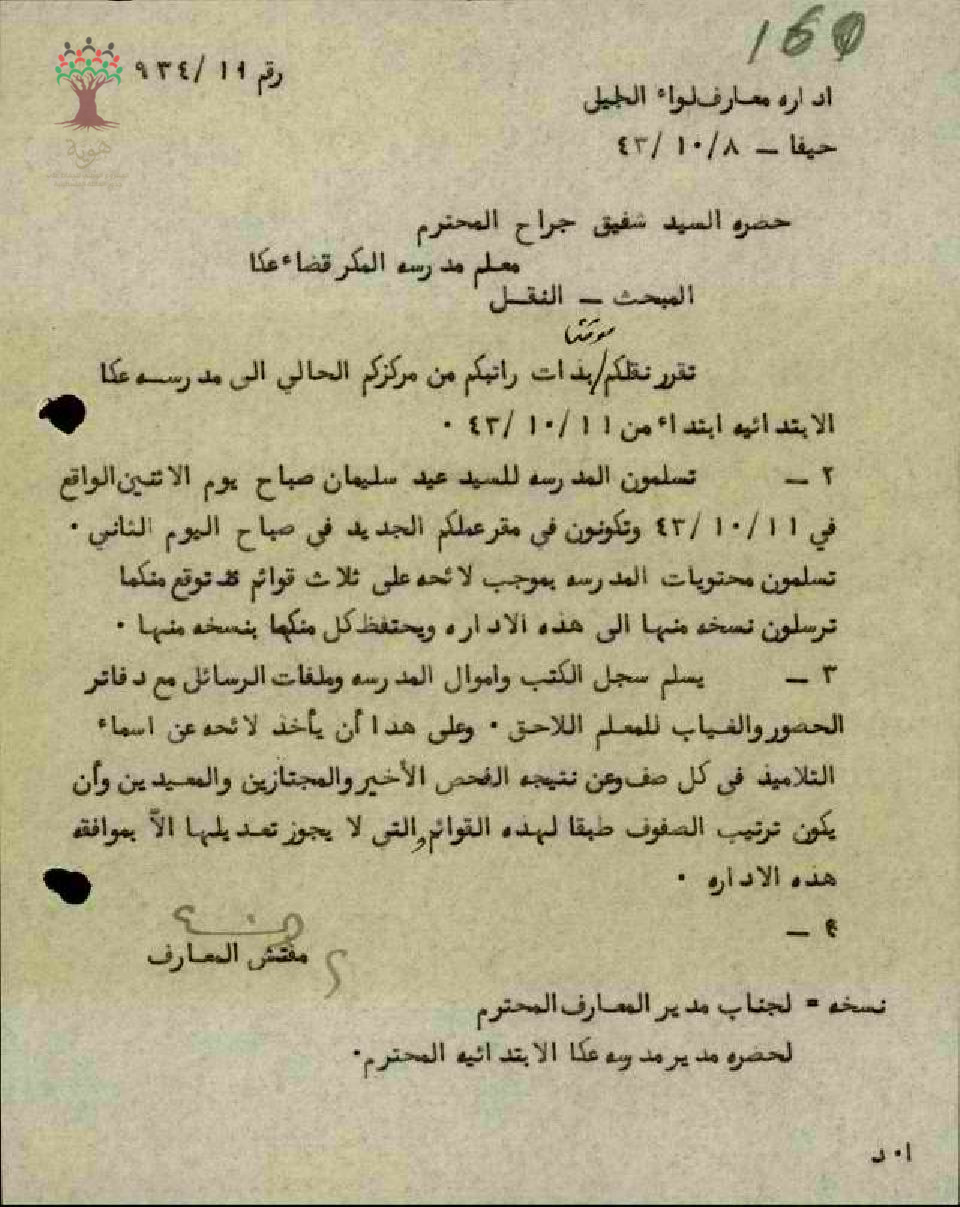 160
رقم ١١/ ٩٣٤
اداره معارف لواء الجليل
حيفا – ٨/ ١٠/ ٤٣
هوية
حضره السيد شفيق جراح المحترم
معلم مدرسه المكر قضاء عكا
المبحث – النقل
موقتا
تقرر نقلكم/بذات راتبكم من مركزكم الحالي الى مدرسه عكا
الابتدائيه ابتداء من ١١/ ١٠/ ٤٣ ٠
٢ – تسلمون المدرسه للسيد عيد سليمان صباح يوم الاثنين الواقع
في ١١/ ١٠/ ٤٣ وتكونون في مقر عملكم الجديد في صباح اليوم الثاني ٠
تسلمون محتويات المدرسه بموجب لائحه على ثلاث قوائم قد توقع منكما
ترسلون نسخه منها الى هذه الاداره ويحتفظ كل منكما بنسخه منها ٠
٣ – يسلم سجل الكتب واموال المدرسه وملفات الرسائل مع دفاتر
الحضور والغياب للمعلم اللاحق ٠ وعلى هذا أن يأخذ لائحه عن اسماء
التلاميذ فى كل صف وعن نتيجه الفحص الأخير والمجتازين والمعيدين وأن
يكون ترتيب الصفوف طبقا لهذه القوائم والتى لا يجوز تعديلها الاّ بموافقه
هذه الاداره ٠
٤ –
مفتش المعارف
نسخه = لجناب مدير المعارف المحترم
لحضره مدير مدرسه عكا الابتدائيه المحترم٠
ا٠ د